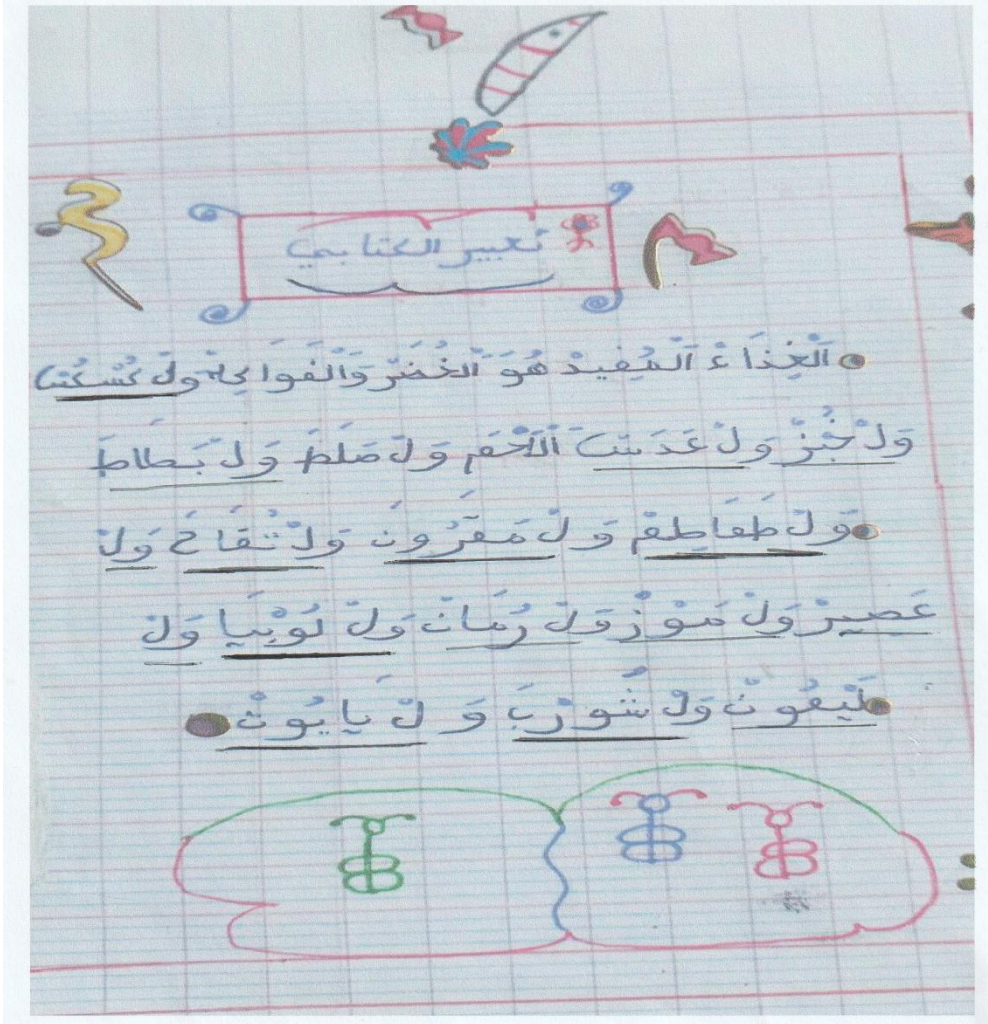 تعبير الكتابي
اَلْغِذَاءْ اَلْمُفِيدْ هُوَ اَلْخُضَرْ وَاَلْفَوَاكِهْ وَلْ كُسْكُسَ
وَلْ خُبْزْ وَلْ عَدَسْ اَلْلَحْمْ وَلْ صَلَطَ وَلْ بَطَاطَ
وَلْ طَمَاطِمْ وَلْ مَقَرُونَ وَلْ تُفَاحَ وَلْ
عَصِيرْ وَلْ مَوْزْ وَلْ رُمَانْ وَلْ لُوْبْيَا وَلْ
لَيْمُونْ وَلْ شُورْبَ وَ لْ يَايُوتْ